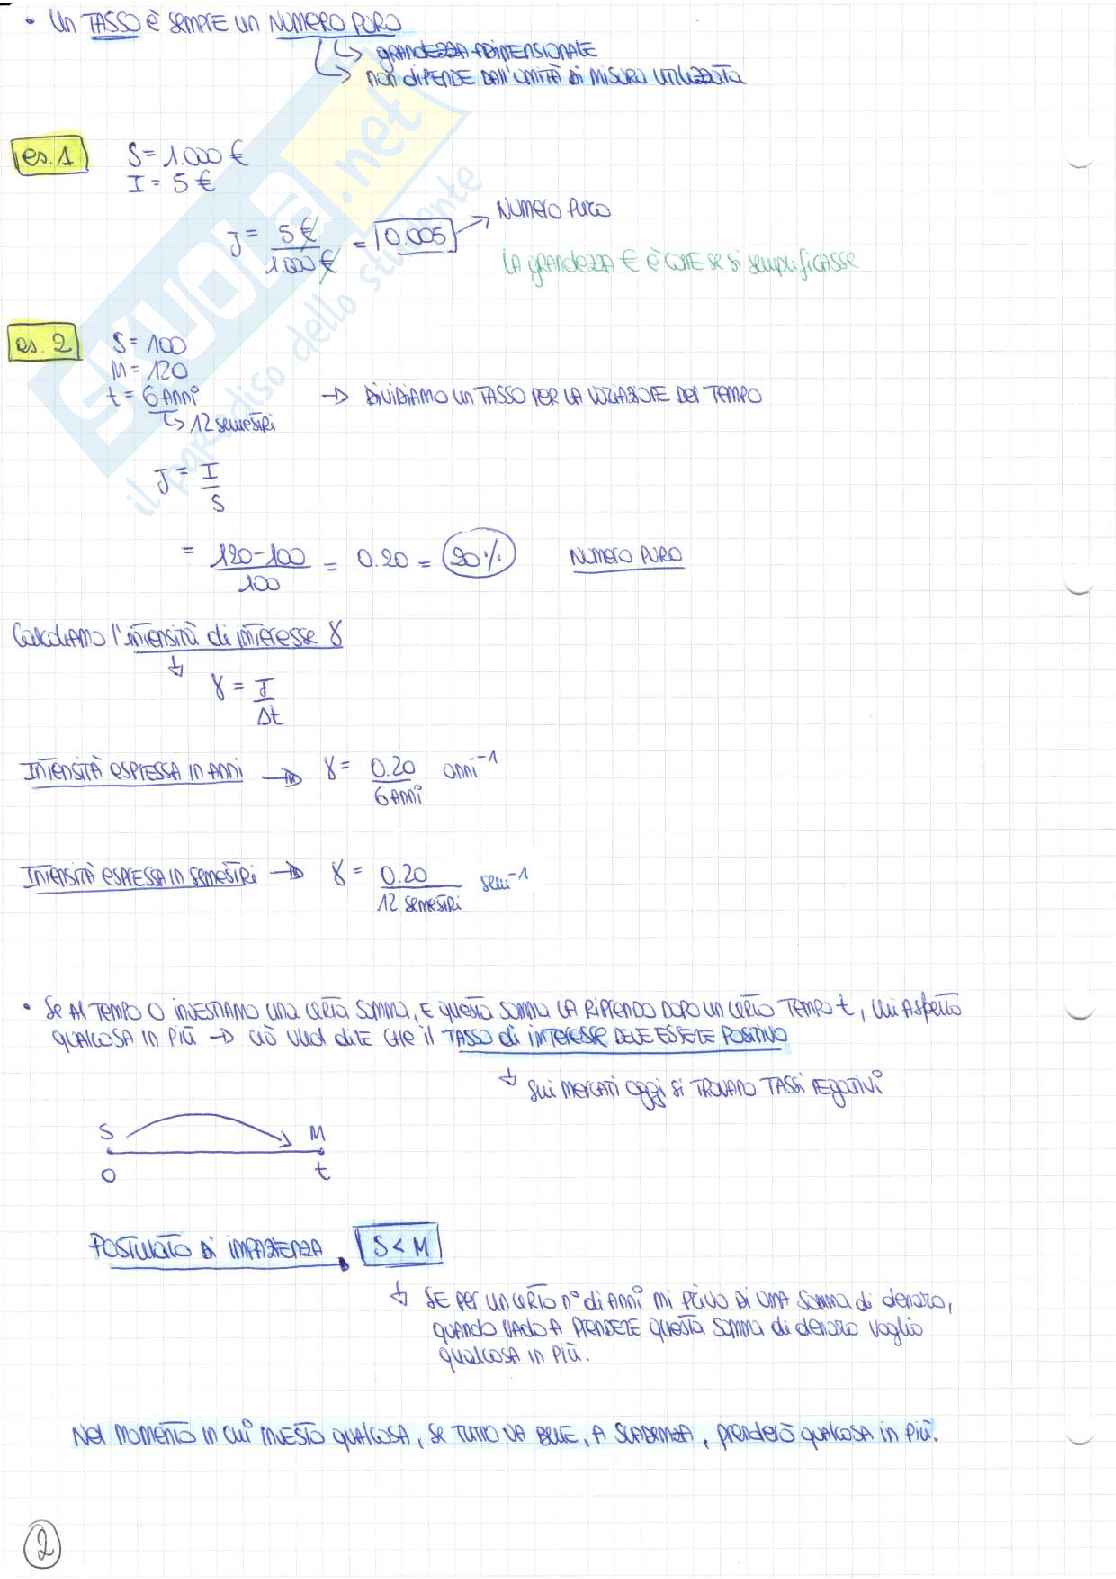 • Un TASSO è SEMPRE un NUMERO PURO
↳ GRANDEZZA ADIMENSIONALE
↳ non dipende dall'unità di misura utilizzata
es. 1
S = 1.000 €
I = 5 €
J = 5€ / 1000€ = 0.005 → NUMERO PURO
LA GRANDEZZA € È COME SE SI SEMPLIFICASSE
es. 2
S = 100
M = 120
t = 6 ANNI → DIVIDIAMO UN TASSO PER LA VARIAZIONE DEL TEMPO
↳ 12 semestri
J = I / S
= 120-100 / 100 = 0.20 = 20% NUMERO PURO
Calcoliamo l'intensità di interesse γ
↓ γ = J / Δt
INTENSITÀ ESPRESSA IN ANNI → γ = 0.20 / 6 ANNI anni⁻¹
INTENSITÀ ESPRESSA IN SEMESTRI → γ = 0.20 / 12 SEMESTRI sem⁻¹
• Se AL TEMPO 0 INVESTIAMO UNA CERTA SOMMA, E QUESTA SOMMA LA RIPRENDO DOPO UN CERTO TEMPO t, MI ASPETTO
QUALCOSA IN PIÙ → CIÒ VUOL DIRE CHE IL TASSO di INTERESSE DEVE ESSERE POSITIVO
↓ SUI MERCATI OGGI SI TROVANO TASSI NEGATIVI
S M
0 t
POSTULATO DI IMPAZIENZA S < M
↓ SE PER UN CERTO n° di ANNI MI PRIVO DI UNA SOMMA di denaro,
QUANDO VADO A PRENDERE QUESTA SOMMA di denaro VOGLIO
QUALCOSA IN PIÙ.
Nel MOMENTO IN CUI INVESTO QUALCOSA, SE TUTTO VA BENE, A SCADENZA, PRENDERÒ QUALCOSA IN PIÙ.
2
SKUOLA.net
il paradiso dello studente